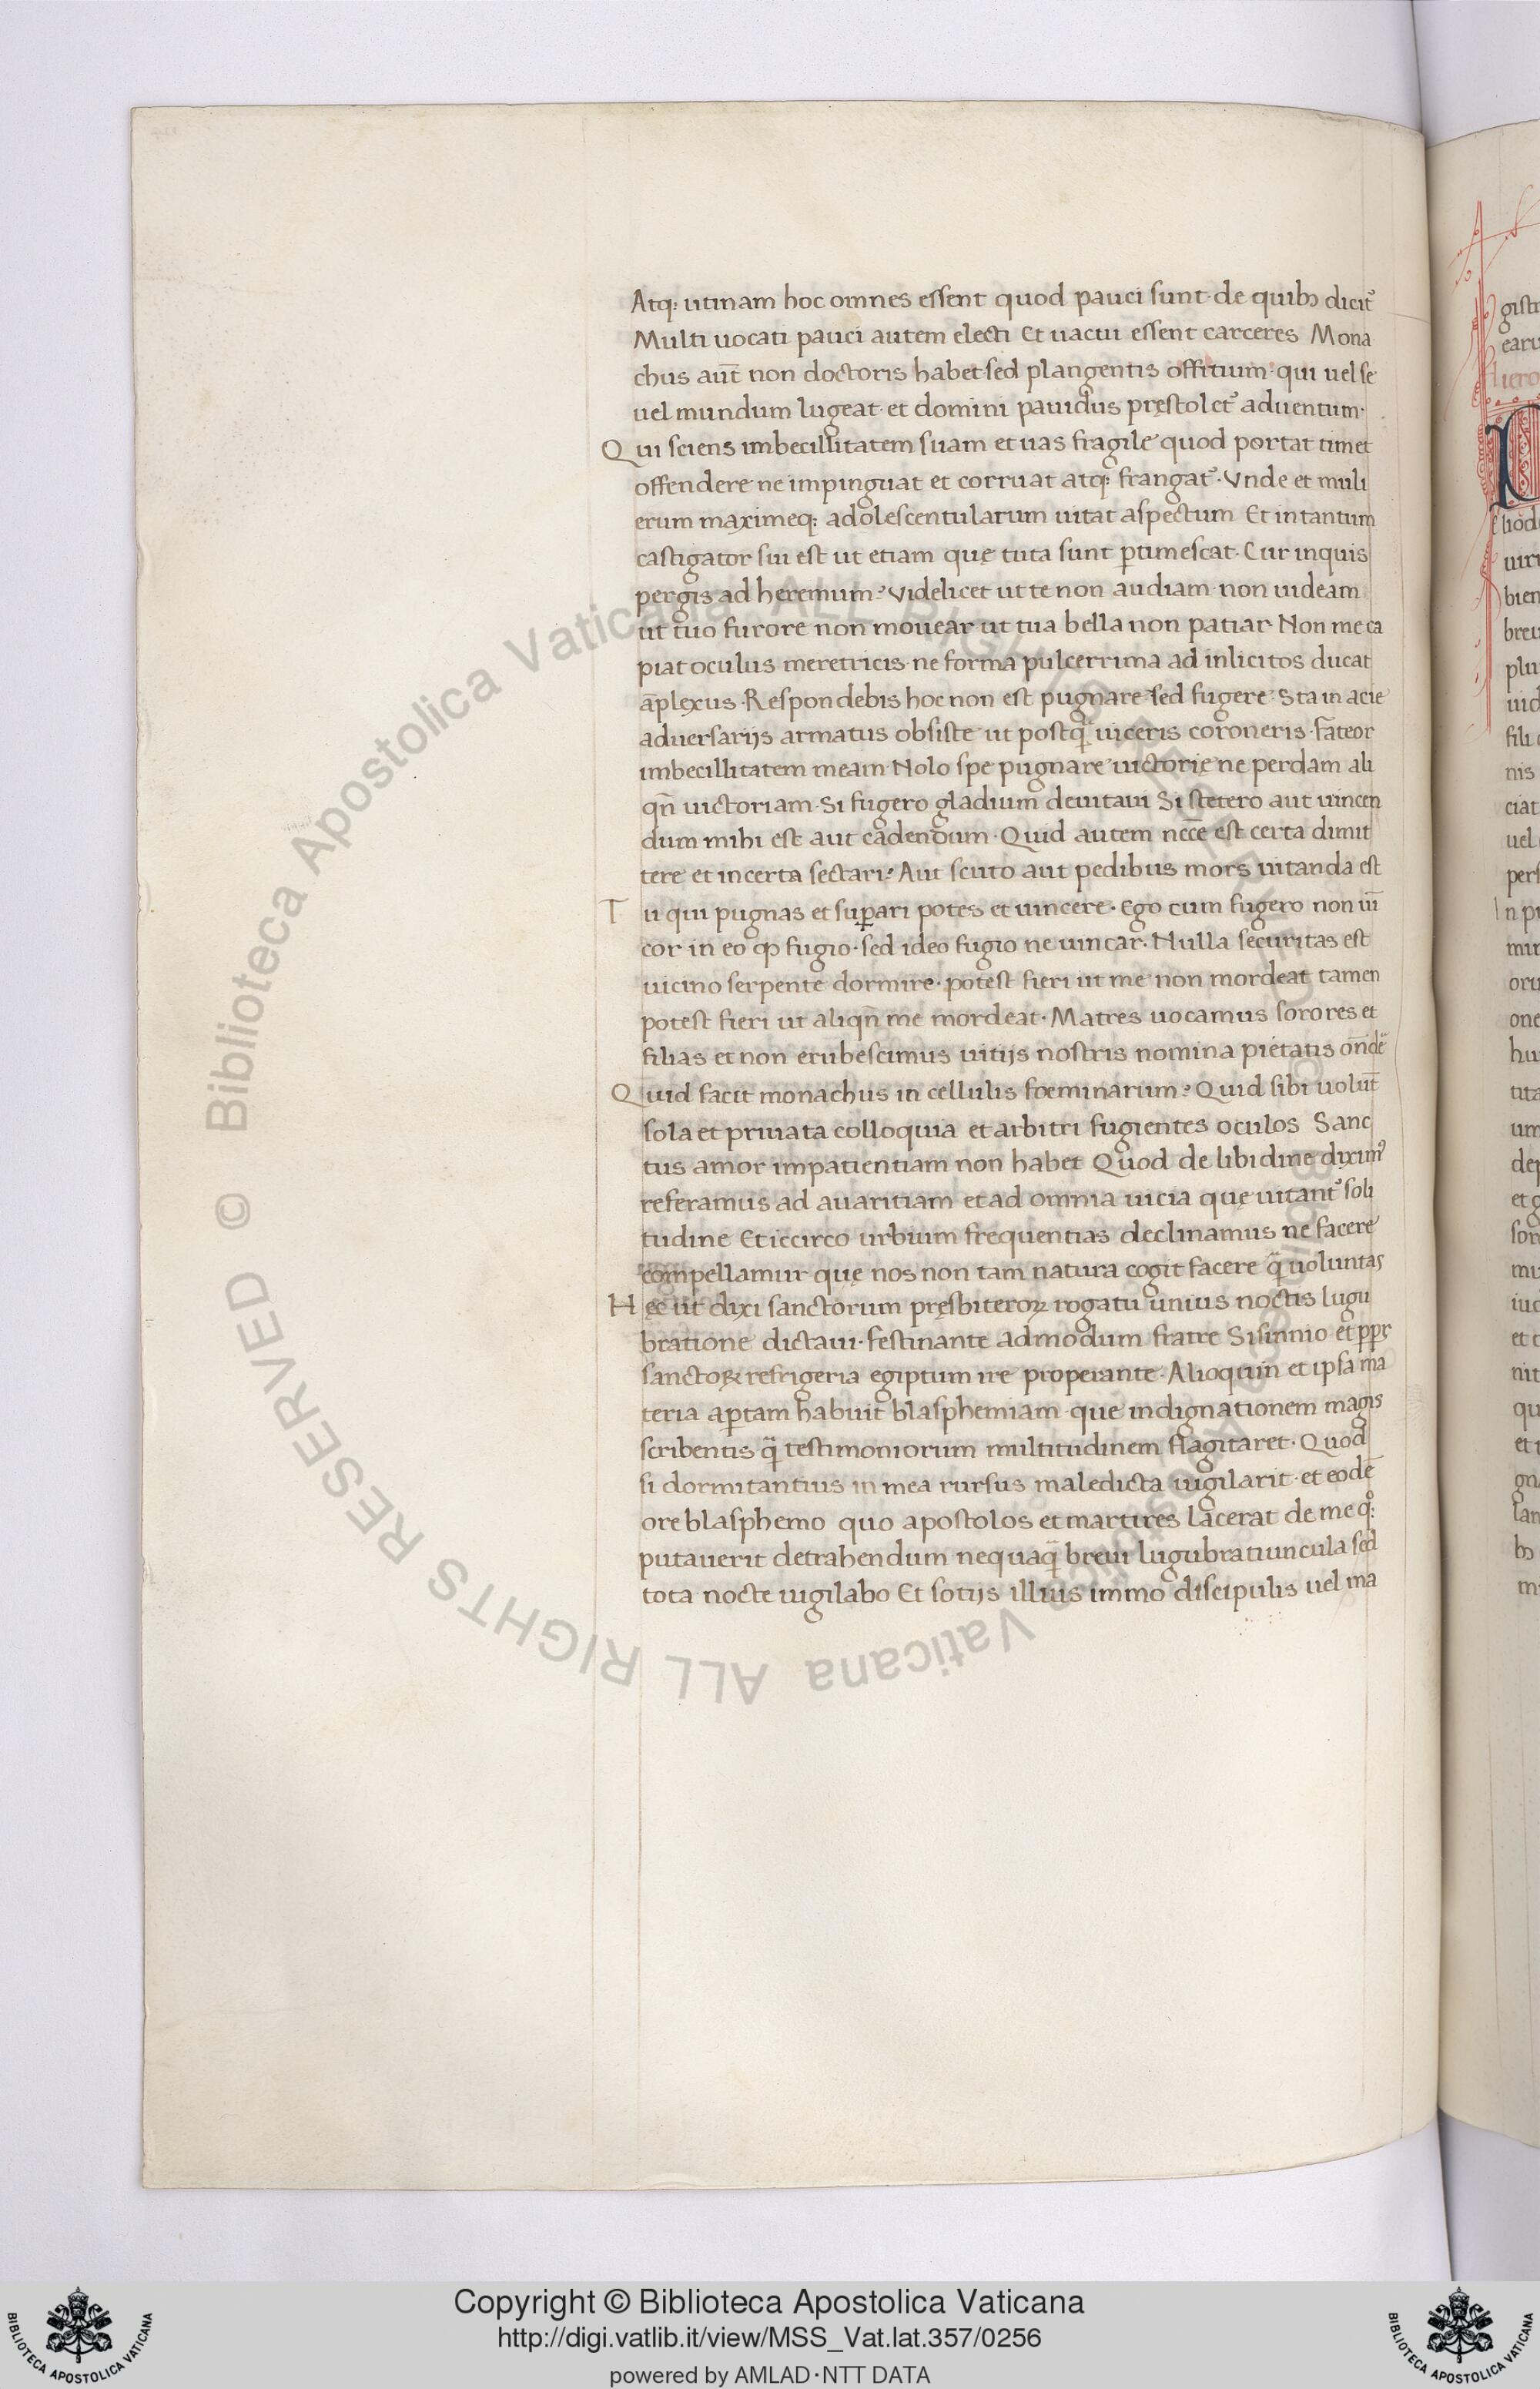 Atq; utinam hoc omnes essent quod pauci sunt· de quibꝫ dicit᷒
Multi uocati pauci autem electi Et uacui essent carceres Mona
chus aut̄ non doctoris habet· sed plangentis offitium· qui uel se
uel mundum lugeat· et domini pauidus pręstolet᷒ aduentum·
Qui sciens imbecillitatem suam et uas fragile quod portat timet
offendere ne impinguat et corruat atq; frangat᷒· Vnde et muli
erum maximeq; adolescentularum uitat aspectum Et in tantum
castigator sui est ut etiam quę tuta sunt ꝑtimescat· Cur inquis
pergis ad heremum? Videlicet ut te non audiam· non uideam
ut tuo furore non mouear· ut tua bella non patiar· Non me ca
piat oculus meretricis· ne forma pulcerrima ad inlicitos ducat
āplexus· Respondebis hoc non est pugnare sed fugere· Sta in acie
aduersarijs armatus obsiste ut postq̄ uiceris coroneris· Fateor
imbecillitatem meam· Nolo spe pugnare uictorię ne perdam ali
qn̄ uictoriam· Si fugero gladium deuitaui Si stetero aut uincen
dum mihi est aut cadendum· Quid autem necc̄e est certa dimit
tere et incerta sectari? Aut scuto aut pedibus mors uitanda est
Tu qui pugnas et suꝑari potes et uincere· Ego cum fugero non uī
cor in eo ꝙ fugio· sed ideo fugio ne uincar· Nulla securitas est
uicino serpente dormire· potest fieri ut me non mordeat tamen
potest fieri ut aliqn̄ me mordeat· Matres uocamus sorores et
filias et non erubescimus uitijs nostris nomina pietatis on̄dē
Quid facit monachus in cellulis foeminarum? Quid sibi uolūt
sola et priuata colloquia et arbitri fugientes oculos Sanc
tus amor impatientiam non habet Quod de libidine dixim᷒
referamus ad auaritiam et ad omnia uicia quę uitant᷒ soli
tudine Et iccirco urbium frequentias declinamus ne facere
compellamur quę nos non tam natura cogit facere q̄ uoluntas
Hęc ut dixi sanctorum pręsbiteroꝝ rogatu unius noctis lugu
bratione dictaui· festinante admodum fratre Sisinnio et ꝓpr
sanctoꝝ refrigeria egiptum ire properante· Alioquin et ipsa ma
teria aꝑtam habuit blasphemiam· que indignationem magis
scribentis q̄ testimoniorum multitudinem flagitaret· Quod
si dormitantius in mea rursus maledicta uigilarit· et eodē
ore blasphemo quo apostolos et martires lacerat de me qͦ;
putauerit detrahendum nequaq̄ breui lugubratiuncula sed
tota nocte uigilabo Et sotijs illius immo discipulis uel ma
© Biblioteca Apostolica Vaticana ALL RIGHTS RESERVED © Biblioteca Apostolica Vaticana ALL RIGHTS RESERVED
Copyright © Biblioteca Apostolica Vaticana
http://digi.vatlib.it/view/MSS_Vat.lat.357/0256
powered by AMLAD·NTT DATA
BIBLIOTECA APOSTOLICA VATICANA
BIBLIOTECA APOSTOLICA VATICANA